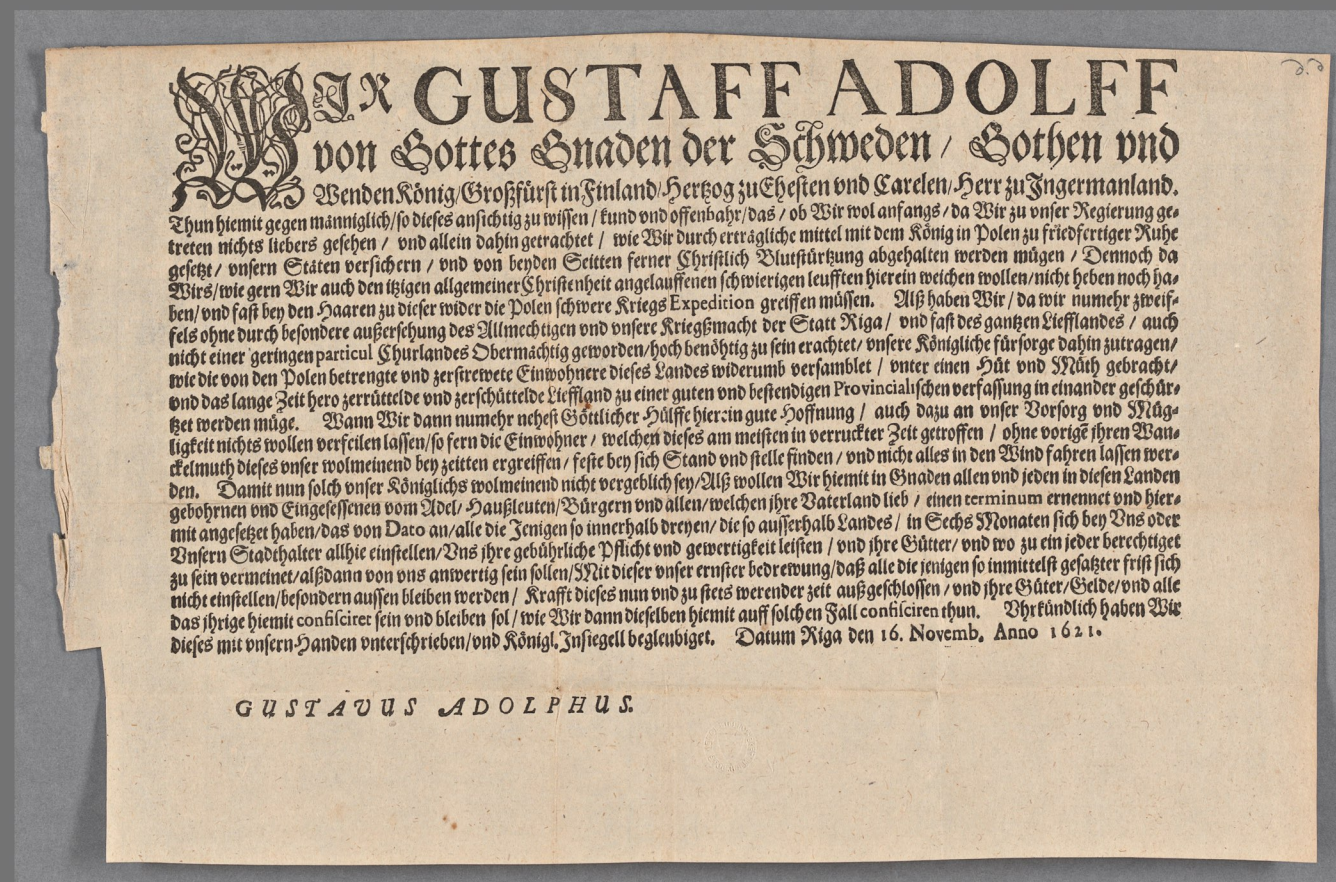 WIR GUSTAFF ADOLFF
von Gottes Gnaden der Schweden / Gothen vnd
Wenden König / Großfürst in Finland / Hertzog zu Ehesten vnd Carelen / Herr zu Ingermanland.
Thun hiemit gegen männiglich / so dieses ansichtig zu wissen / kund vnd offenbahr / das / ob Wir wol anfangs / da Wir zu vnser Regierung ge-
treten nichts liebers gesehen / vnd allein dahin getrachtet / wie Wir durch erträgliche mittel mit dem König in Polen zu friedfertiger Ruhe
gesetzt / vnsern Stäten versichern / vnd von beyden Seitten ferner Christlich Blutstürtzung abgehalten werden mügen / Dennoch da
Wirs / wie gern Wir auch den itzigen allgemeiner Christenheit angelauffenen schwierigen leufften hierein weichen wollen / nicht heben noch ha-
ben / vnd fast bey den Haaren zu dieser wider die Polen schwere Kriegs Expedition greiffen müssen. Alß haben Wir / da wir numehr zweif-
fels ohne durch besondere außersehung des Allmechtigen vnd vnsere Kriegßmacht der Statt Riga / vnd fast des gantzen Liefflandes / auch
nicht einer geringen particul Churlandes Obermächtig geworden / hoch benöhtig zu sein erachtet / vnsere Königliche fürsorge dahin zutragen /
wie die von den Polen betrengte vnd zerstrewete Einwohnere dieses Landes widerumb versamblet / vnter einen Hüt vnd Müth gebracht /
vnd das lange Zeit hero zerrüttelde vnd zerschüttelde Lieffland zu einer guten vnd bestendigen Provincialischen verfassung in einander geschür-
tzet werden müge. Wann Wir dann numehr nehest Göttlicher Hülffe hierein gute Hoffnung / auch dazu an vnser Vorsorg vnd Müg-
ligkeit nichts wollen verfeilen lassen / so fern die Einwohner / welchen dieses am meisten in verruckter Zeit getroffen / ohne vorigē jhren Wan-
ckelmuth dieses vnser wolmeinend bey zeitten ergreiffen / feste bey sich Stand vnd stelle finden / vnd nicht alles in den Wind fahren lassen wer-
den. Damit nun solch vnser Königlichs wolmeinend nicht vergeblich sey / Alß wollen Wir hiemit in Gnaden allen vnd jeden in diesen Landen
gebohrnen vnd Eingesessenen vom Adel / Haußleuten / Bürgern vnd allen / welchen jhre Vaterland lieb / einen terminum ernennet vnd hier-
mit angesetzet haben / das von Dato an / alle die Jenigen so innerhalb dreyen / die so ausserhalb Landes / in Sechs Monaten sich bey Vns oder
Vnsern Stadthalter allhie einstellen / Vns jhre gebührliche Pflicht vnd gewertigkeit leisten / vnd jhre Gütter / vnd wo zu ein jeder berechtiget
zu sein vermeinet / alßdann von vns anwertig sein sollen / Mit dieser vnser ernster bedrewung / daß alle die jenigen so inmittelst gesatzter frist sich
nicht einstellen / besondern aussen bleiben werden / Krafft dieses nun vnd zu stets werender zeit außgeschlossen / vnd jhre Güter / Gelde / vnd alle
das jhrige hiemit confisciret sein vnd bleiben sol / wie Wir dann dieselben hiemit auff solchen Fall confisciren thun. Vhrkündlich haben Wir
dieses mit vnsern Handen vnterschrieben / vnd Königl. Insiegell begleubiget. Datum Riga den 16. Novemb. Anno 1621.
GUSTAVUS ADOLPHUS.